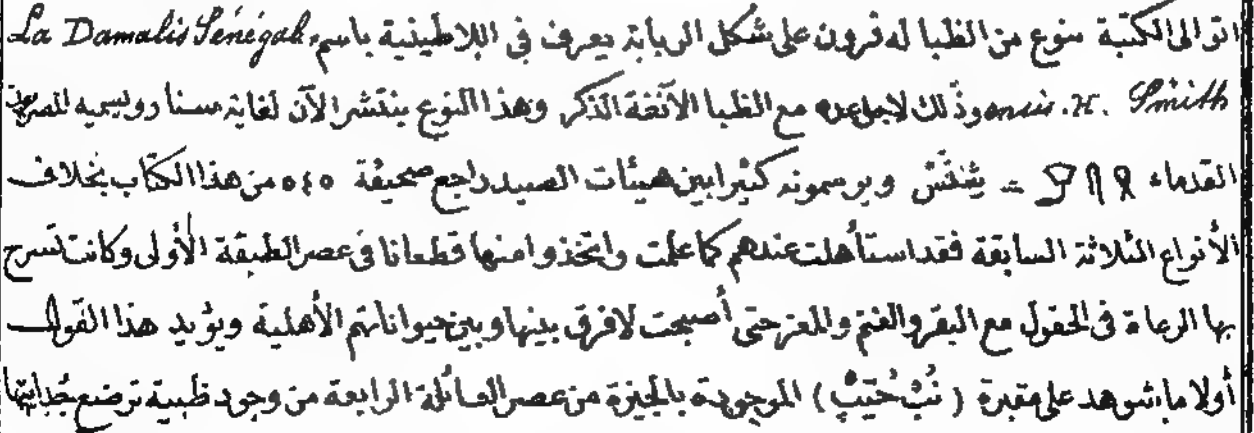 اتوا الى الكتبة بنوع من الظبا له قرون على شكل الربابة يعرف فى اللاطينية باسم La Damalis Sénégal
ensis. H. Smith وذلك مع الظبا الآنفة الذكر وهذا النوع ينتشر الآن لغاية سنار ويسميه المصريون
القدماء = شفتش ويرسمونه كثيرا بين هيئات الصيد راجع صحيفة ٥٤٥ من هذا الكتاب بخلاف
الأنواع الثلاثة السابقة فقد استأهلت عندهم كما علمت واتخذوا منها قطعانا فى عصر الطبقة الأولى وكانت تسرح
بها الرعاة فى الحقول مع البقر والغنم والمعز حتى أصبحت لا فرق بينها وبين حيواناتهم الأهلية ويؤيد هذا القول
أولا ما شوهد على مقبرة ( نُبْ حُتَيبْ ) الموجودة بالجيزة من عصر العائلة الرابعة من وجود ظبية ترضع جدايتها